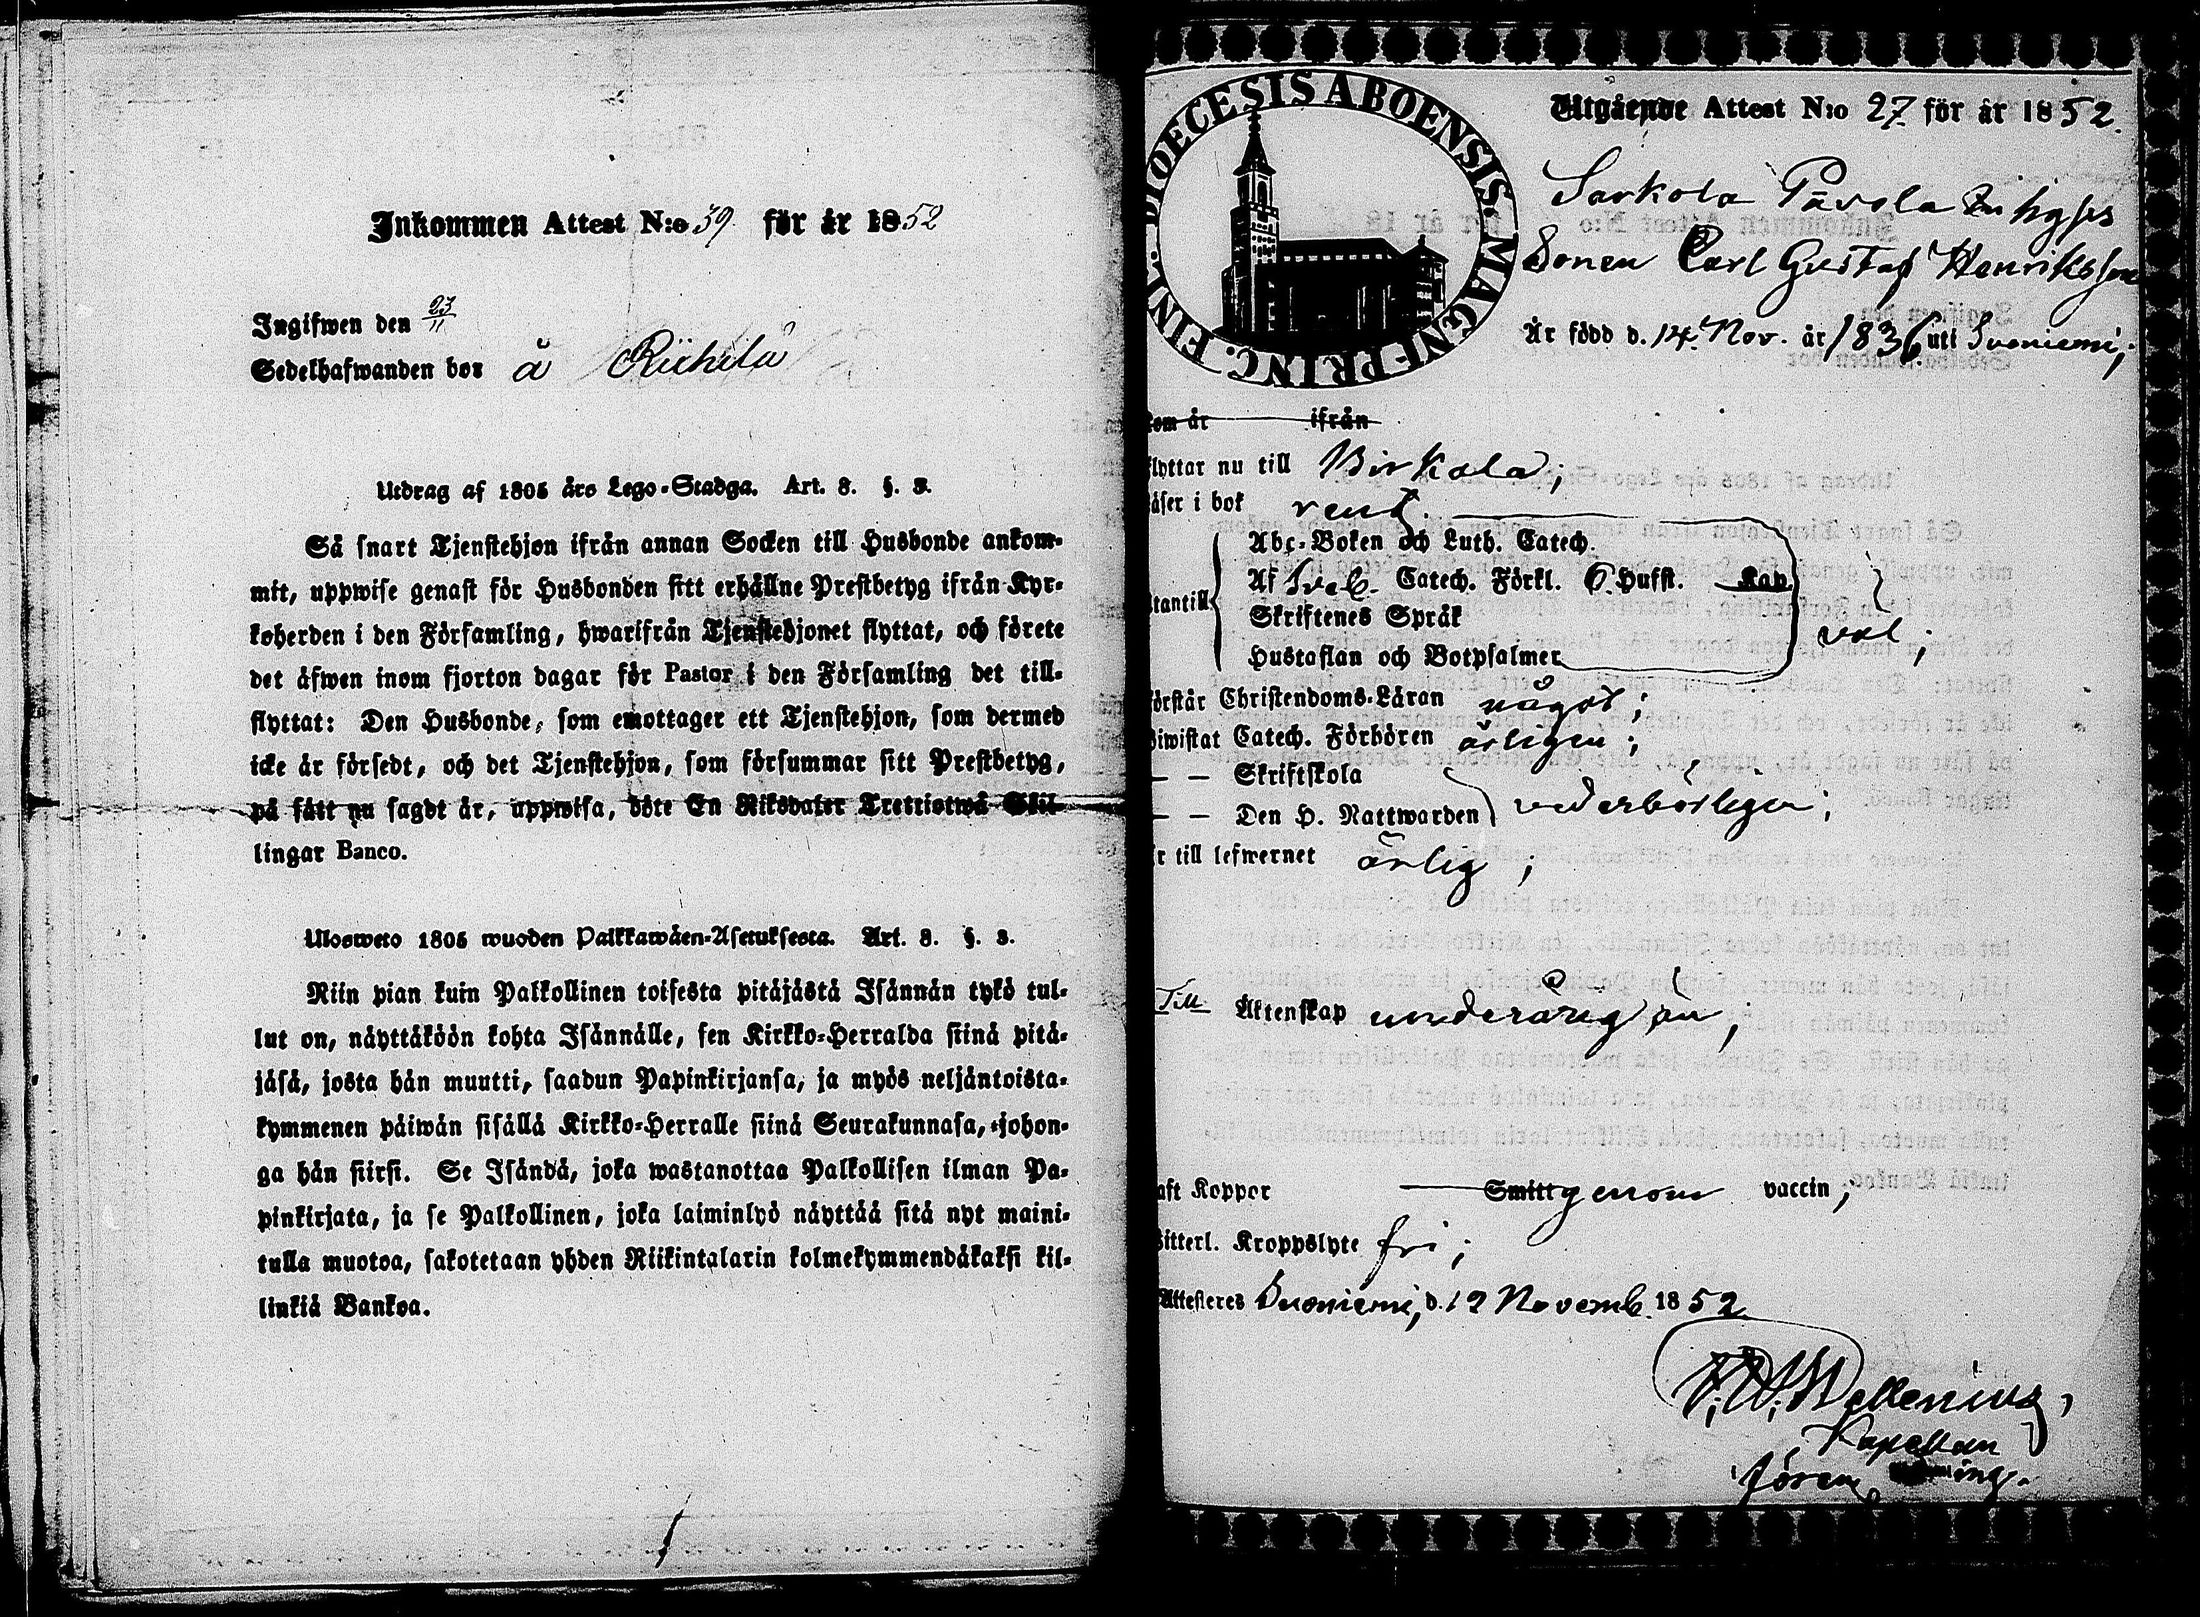 Inkommen Attest N:o 39 för år 1852
Ingifwen den 23/11
Sedelhafwanden bor å Riihilä
Utdrag af 1805 års Lego-Stadga. Art. 8. §. 3.
Så snart Tjenstehjon ifrån annan Socken till Husbonde ankom-
mit, uppwise genast för Husbonden sitt erhållne Prestbetyg ifrån Kyr-
koherden i den Församling, hwarifrån Tjenstehjonet flyttat, och förete
det äfwen inom fjorton dagar för Pastor i den Församling det till-
flyttat: Den Husbonde, som emottager ett Tjenstehjon, som dermed
icke är försedt, och det Tjenstehjon, som försummar sitt Prestbetyg,
på sätt nu sagdt är, uppwisa, böte En Riksdaler Trettiotwå Skil-
lingar Banco.
Ulosweto 1805 wuoden Palkkawäen-Asetuksesta. Art. 8. §. 3.
Niin pian kuin Palkollinen toisesta pitäjästä Isännän tykö tul-
lut on, näyttäköön kohta Isännälle, sen Kirkko-Herralda siinä pitä-
jäsä, josta hän muutti, saadun Papinkirjansa, ja myös neljäntoista-
kymmenen päiwän sisällä Kirkko-Herralle siinä Seurakunnasa, johon-
ga hän siirsi. Se Isändä, joka wastanottaa Palkollisen ilman Pa-
pinkirjata, ja se Palkollinen, joka laiminlyö näyttää sitä nyt maini-
tulla muotoa, sakotetaan yhden Riikintalarin kolmekymmendäkaksi kil-
linkiä Bankoa.
DIOECESIS ABOENSIS. MAGNI PRINC. FINL.
Utgående Attest N:o 27 för år 1852.
Sarkola Pävola
Sonen Carl Gustaf Henriksson
Är född d. 14 Nov. år 1836 uti Suoniemi;
kom år ifrån
flyttar nu till Birkala;
läser i bok rent.
Abc-Boken och Luth. Catech.
Af Sveb. Catech. Förkl. 6. Hufst. Kap
utantill
Skriftenes Språk
väl;
Hustaflan och Botpsalmer
förstår Christendoms-Läran något;
Biwistat Catech. Förhören årligen;
— — Skriftskola
— — Den H. Nattwarden wederbörligen;
är till lefwernet ärlig;
Till Äktenskap underårig än;
haft Koppor — Smitt genom vaccin;
Witterl. Kroppslyte fri;
Attesteres Suoniemi, d. 12 Novemb. 1852.
Kapellan